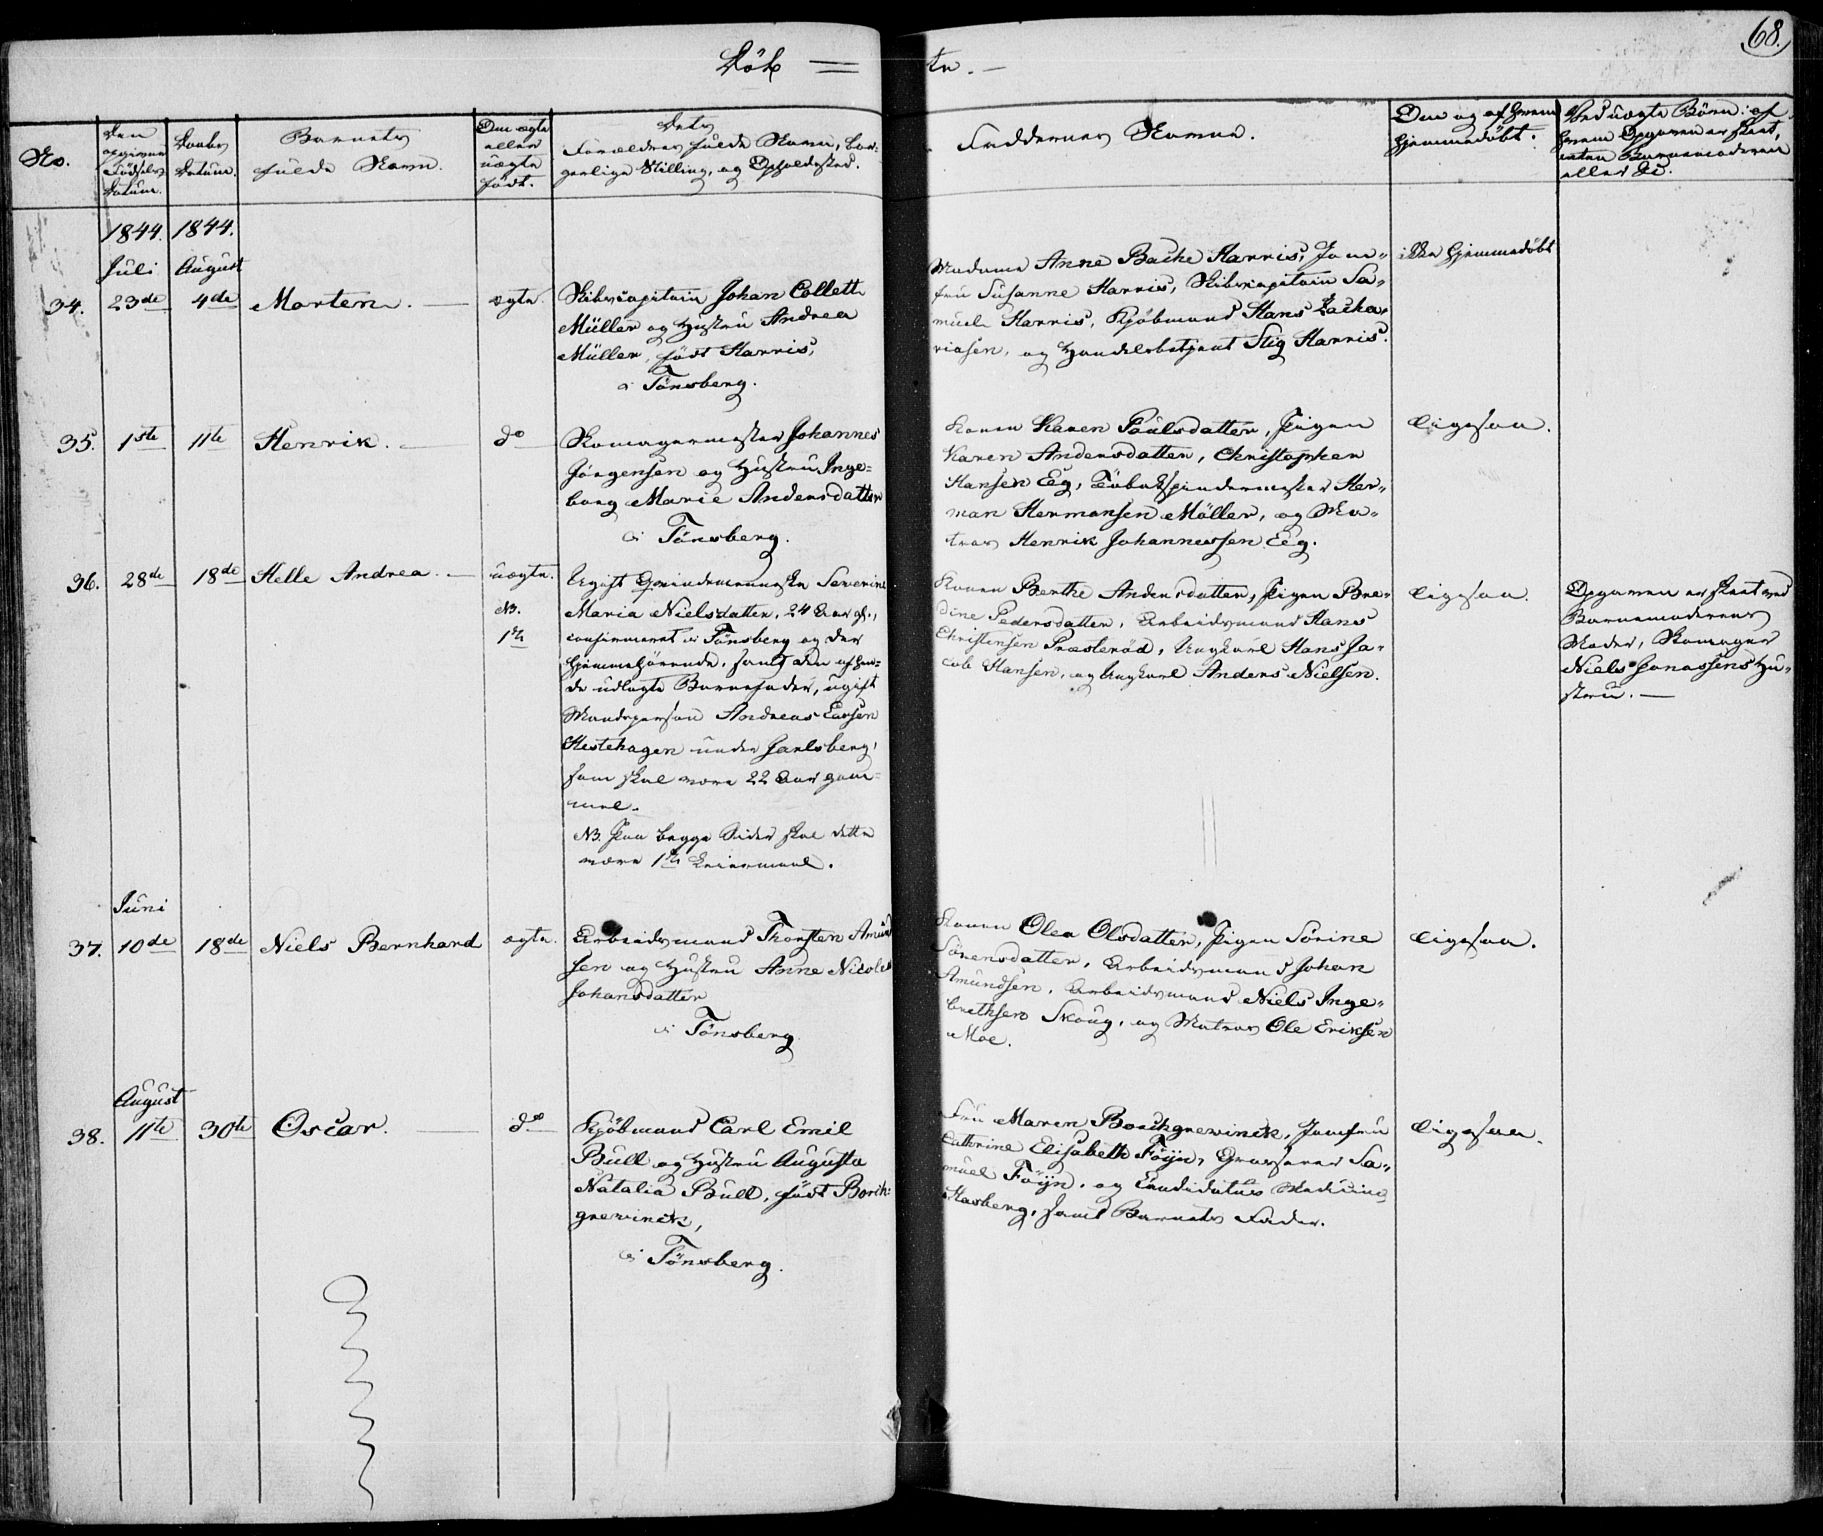 Döb =
te. —
68.
No.
Den opgivne Födsels Datum.
Daabs Datum.
Barnets fulde Navn.
Om ægte eller uægte födt.
Dets Forældres fulde Navn, borgerlige Stilling, og Opholdssted.
Faddernes Navne.
Om og af hvem hjemmedöbt.
Ved uægte Börn: af hvem Opgaven er skeet, enten Barnemoderen eller &c.
1844. 1844.
Juli August
34. 23de 4de Morten. — ægte.
Skibscapitain Johan Collett
Müller og Hustru Andrea
Müller, födt Harris,
i Tönsberg.
Madame Anne Bache Harris, Jom-
fru Susanne Harris, Skibscapitain Sa-
muel Harris, Kjöbmand Hans Zacha-
riasen, og Handelsbetjent Stig Harris.
ikke hjemmedöbt
35. 1ste 11te Henrik. — do
Skomagermester Johannes
Jörgensen og Hustru Inge-
borg Marie Andersdatter
i Tönsberg.
Konen Karen Paulsdatter, Pigen
Karen Andersdatter, Christopher
Hansen Eeg, Tobakspindermester Her-
man Hermansen Möller, og Ma-
tros Henrik Johannessen Eeg.
ligesaa.
36. 28de 18de Helle Andrea. — uægte.
NB.
1ste
Ugift Qvindemenneske Severine
Maria Nielsdatter, 24 Aar gl.,
confirmeret i Tönsberg og der
hjemmehörende, samt den af hen-
de udlagte Barnefader, ugift
Mandsperson Andreas Larsen
Hestehagen under Jarlsberg,
som skal være 22 Aar gam-
mel.
NB. Paa begge Sider skal dette
være 1ste Leiermaal.
Konen Berthe Andersdatter, Pigen Bre-
dine Pedersdatter, Arbeidsmand Hans
Christensen Præsteröd, Ungkarl Hans Ja-
cob Hansen, og Ungkarl Anders Nielsen.
ligesaa.
Opgaven er skeet ved
Barnemoderens
Moder, Skomager
Niels Jonassens Hu-
stru. —
Juni
37. 10de 18de Niels Bernhard ægte.
Arbeidsmand Thorsten Amund
sen og Hustru Anne Nicole
Johansdatter
i Tönsberg
Konen Olea Olsdatter, Pigen Sörine
Sörensdatter, Arbeidsmand Johan
Amundsen, Arbeidsmand Niels Inge-
brethsen Skoug, og Matros Ole Eriksen
Moe.
ligesaa.
August
38. 11te 30te Oscar. — do
Kjöbmand Carl Emil
Bull og Hustru Augusta
Natalia Bull, födt Borch-
grevinck,
i Tönsberg.
Fru Maren Borchgrevinck, Jomfru
Cathrine Elisabeth Föyn, Grosserer Sa-
muel Föyn, og Candidatus Medicinæ
Hasberg, samt Barnets Fader.
ligesaa.